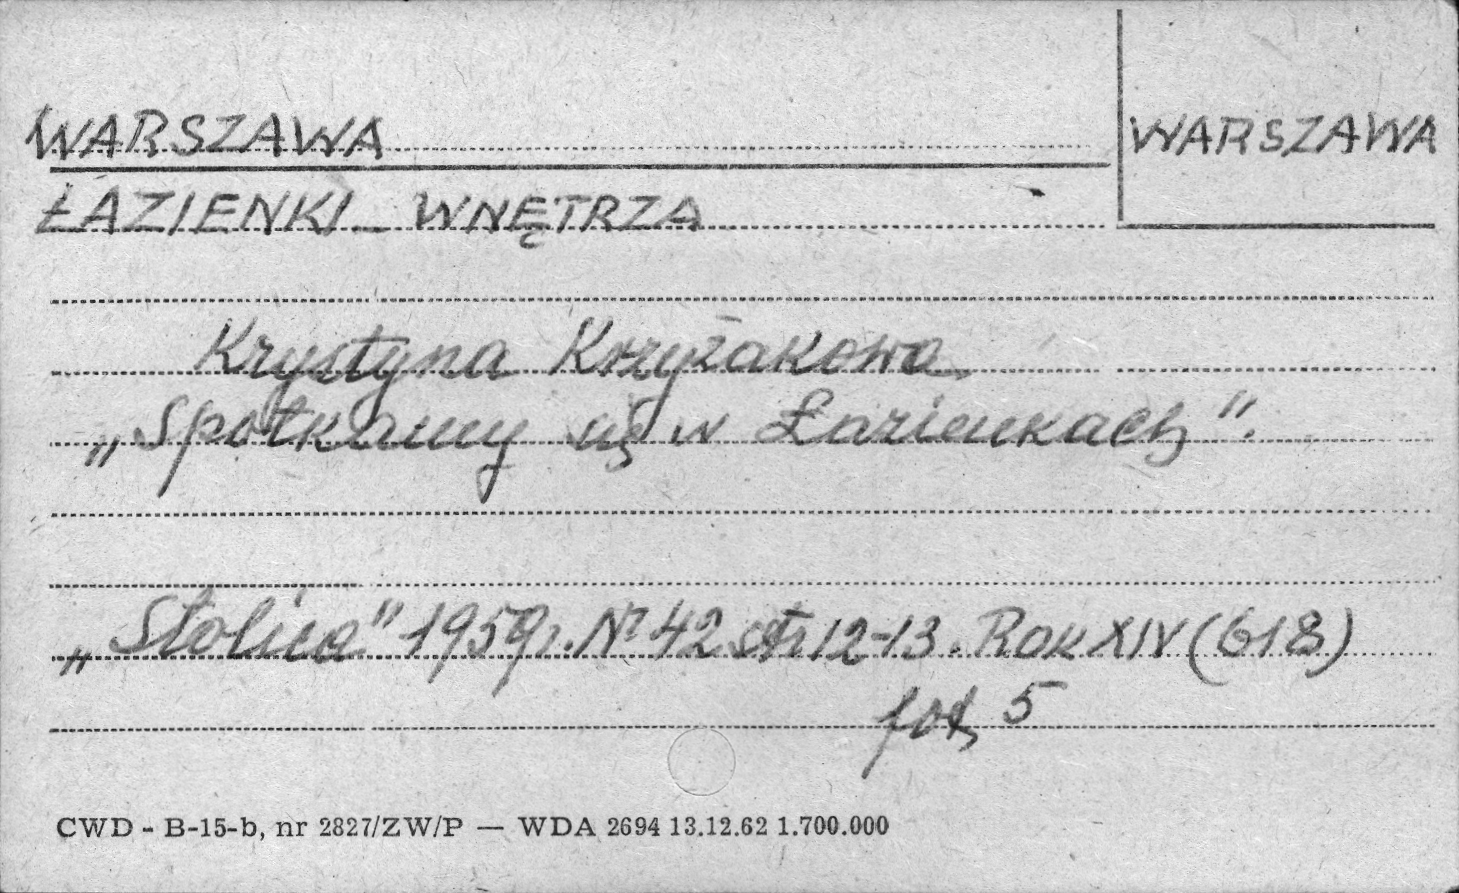 WARSZAWA
WARSZAWA
ŁAZIENKI – WNĘTRZA
Krystyna Krzyżakowa
„Spotkamy się w Łazienkach”.
„Stolica” 1959r. Nr 42 str 12-13. Rok XIV (618)
fot. 5
CWD - B-15-b, nr 2827/ZW/P — WDA 2694 13.12.62 1.700.000